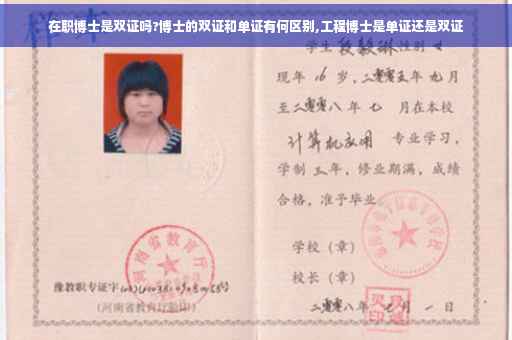 在职博士是双证吗?博士的双证和单证有何区别,工程博士是单证还是双证
样本
学生 段毅琳 性别 女
现年 16 岁，二零零五年 九 月
至二零零八 年 七 月在本校
计算机应用 专业学习，
学制 三 年，修业期满，成绩
合格，准予毕业。
学校（章）
校长（章）
二零零八年 七 月 一 日
河南省教育厅
豫教职专证字
(河南省教育厅验印)